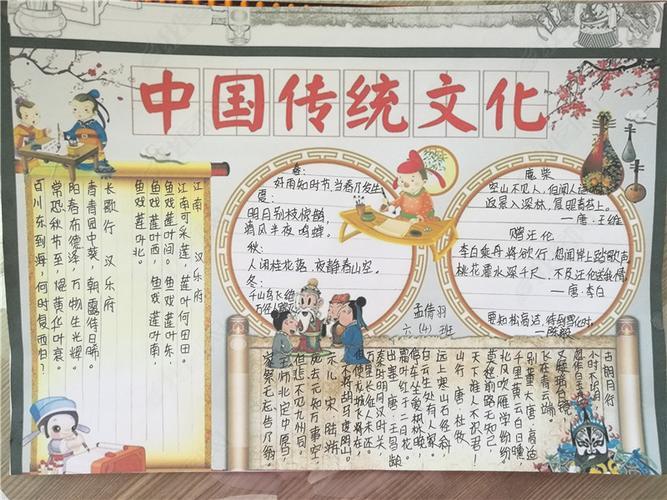 中国传统文化
江南 汉乐府
江南可采莲,莲叶何田田。
鱼戏莲叶间。鱼戏莲叶东,
鱼戏莲叶西,鱼戏莲叶南,
鱼戏莲叶北。
长歌行 汉乐府
青青园中葵,朝露待日晞。
阳春布德泽,万物生光辉。
常恐秋节至,焜黄华叶衰。
百川东到海,何时复西归?
春:
好雨知时节,当春乃发生
夏:
明月别枝惊鹊,
清风半夜鸣蝉。
秋:
人闲桂花落,夜静春山空。
冬:
千山鸟飞绝
万径人踪灭
鹿柴
空山不见人,但闻人语
返景入深林,复照青苔上。
—唐·王维
赠汪伦
李白乘舟将欲行,忽闻岸上踏歌声
桃花潭水深千尺,不及汪伦送我情
—唐·李白
要知松高洁,待到雪化时
—陈毅
孟倩羽
六(4)班
古朗月行
小时不识月
呼作白玉盘
又疑瑶台镜
飞在青云端
别董大 唐 高适
千里黄云白日曛
北风吹雁雪纷纷
莫愁前路无知己
天下谁人不识君!
山行 唐·杜牧
远上寒山石径斜
白云生处有人家。
停车坐爱枫林晚,
霜叶红于二月花。
出塞 唐 王昌龄
秦时明月汉时关
万里长征人未还。
但使龙城飞将在,
不教胡马度阴山。
示儿 宋 陆游
死去元知万事空,
但悲不见九州同。
王师北定中原日,
家祭无忘告乃翁。